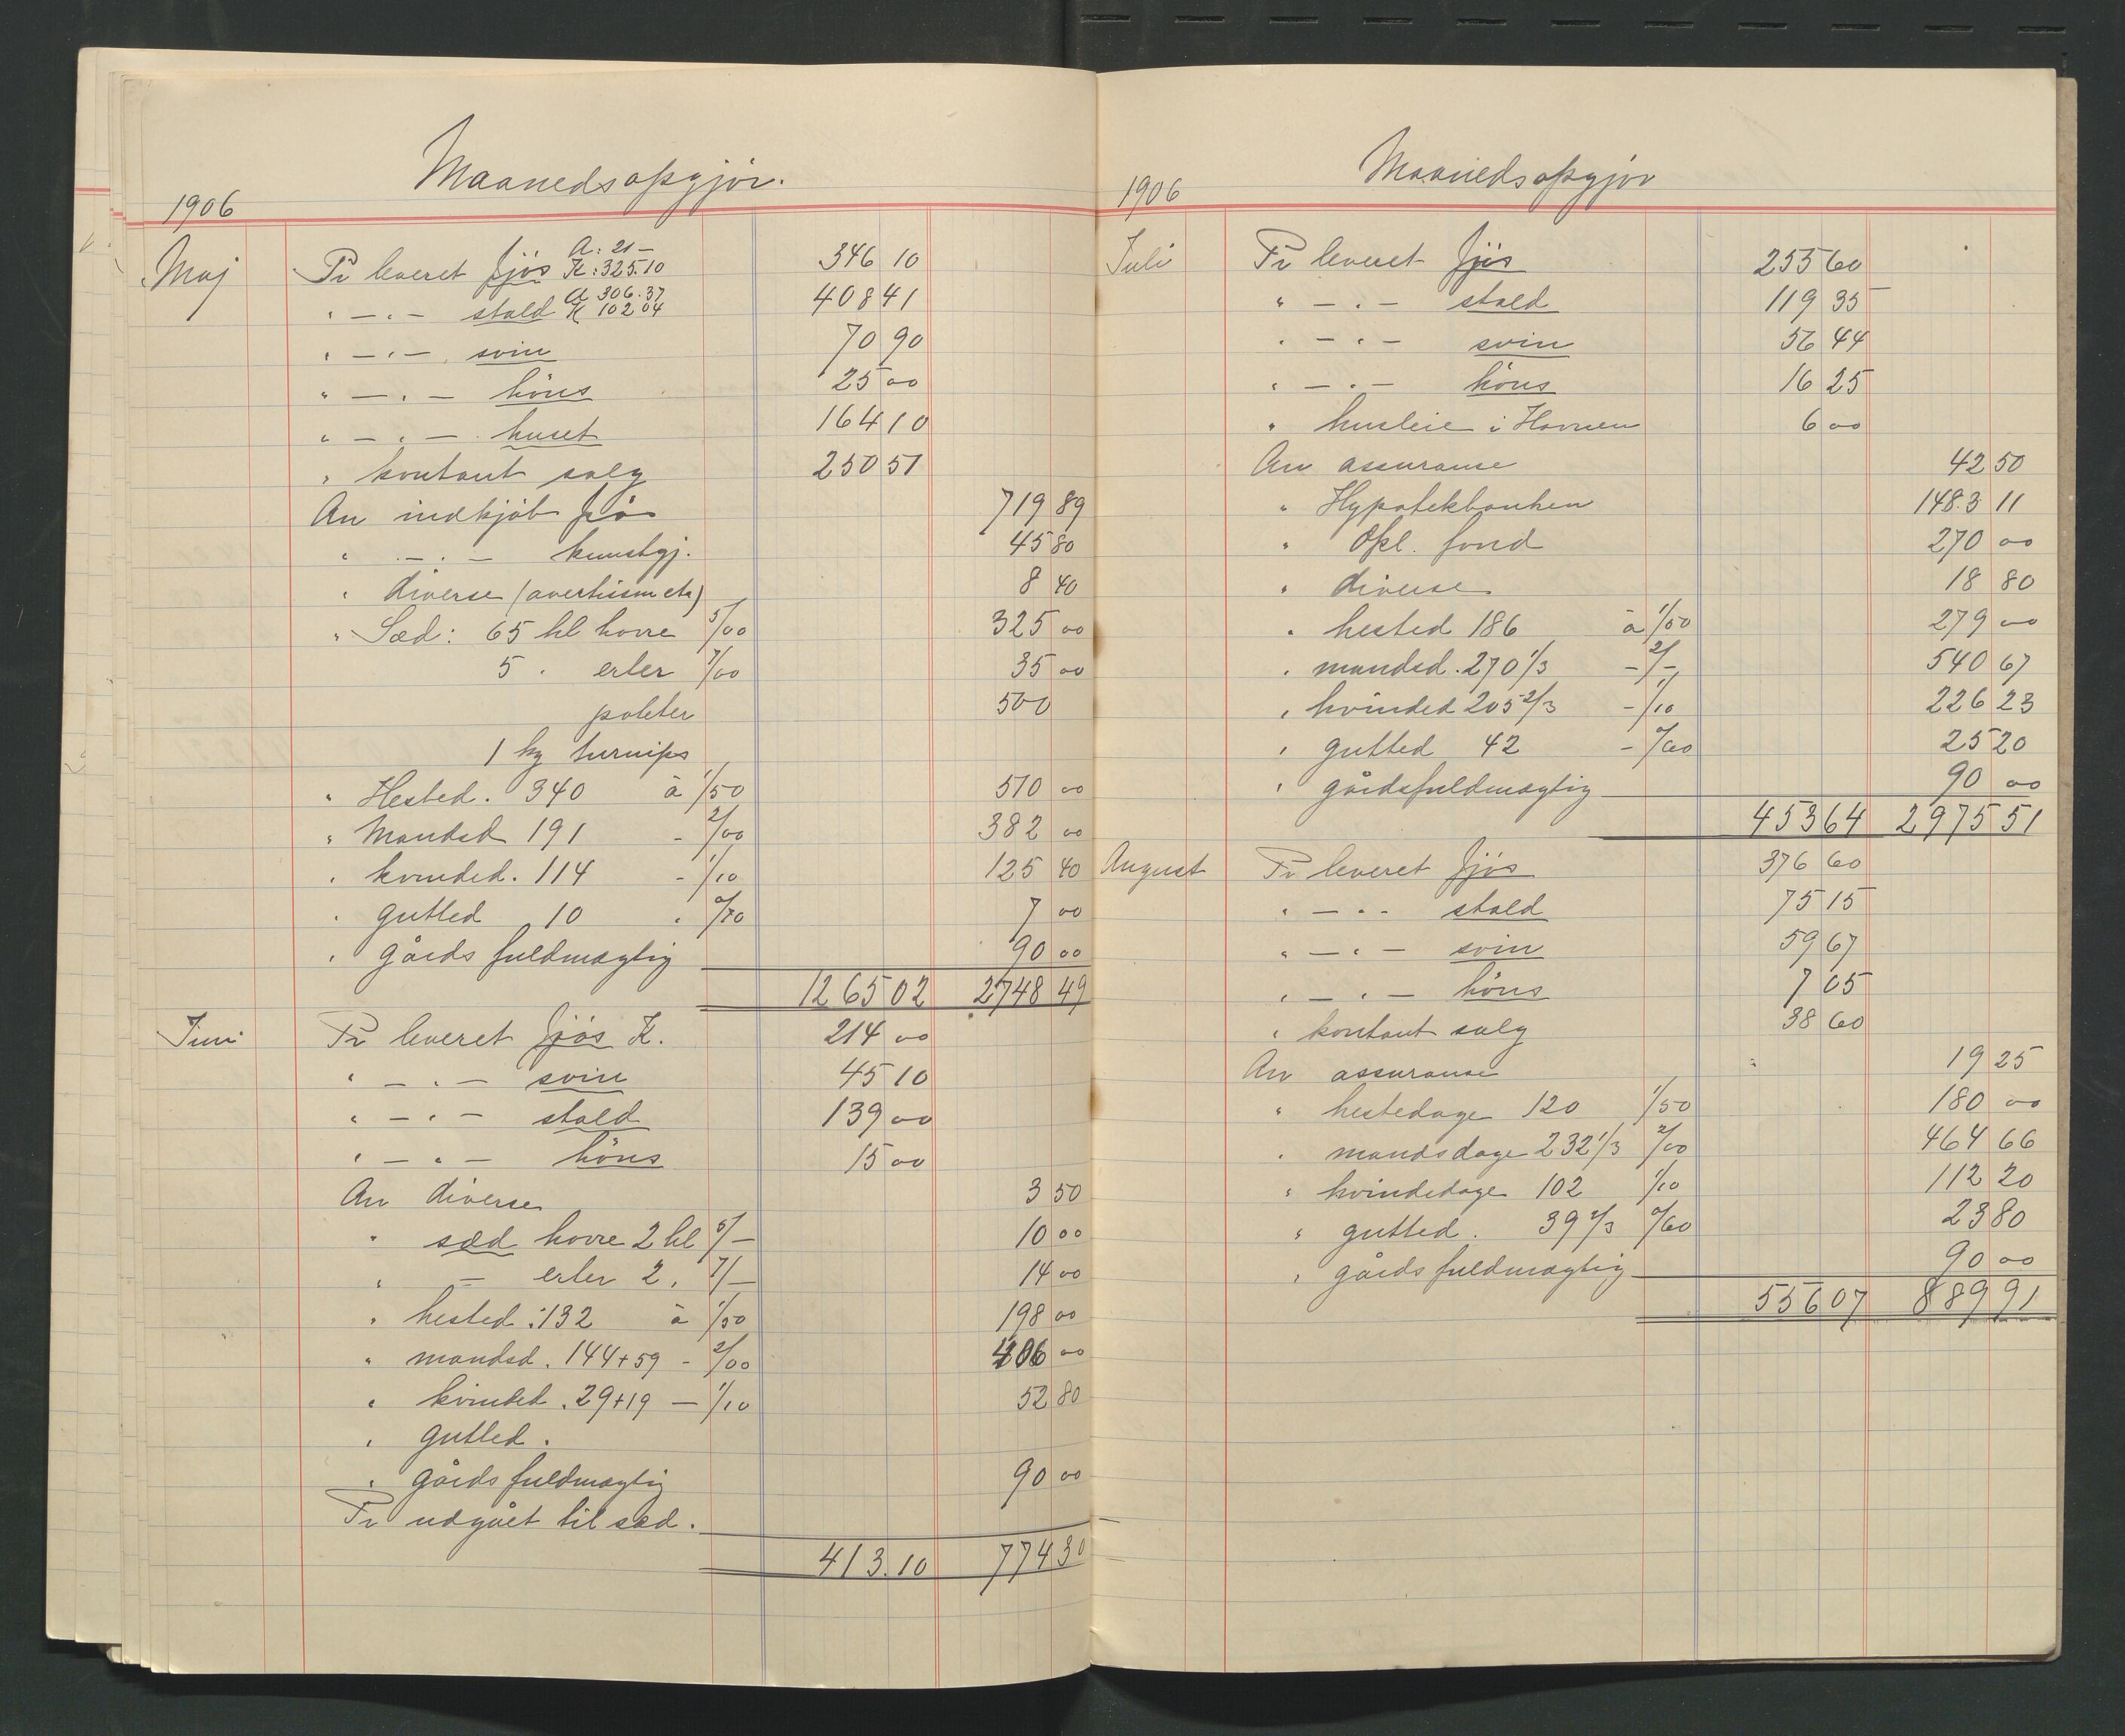 Maanedsopgjör.
1906
Maj Pr leveret fjös A: 21 – K: 325.10 346 10
" – " – stald A 306.37 K 102 04 408 41
" – " – svin 70 90
" – " – höns 25 00
" – " – huset 164 10
" kontant salg 250 51
An indkjöb frö 719 89
" – " – kunstgj. 45 80
" diverse (avertissm etc) 8 40
" Sæd: 65 hl havre 5/00 325 00
5 " erter 7/00 35 00
poteter 500
1 kg turnips
" Hested. 340 à 1/50 510 00
" Mandsd 191 - 2/00 382 00
" kvinded. 114 - 1/10 125 40
" gutted 10 " 0/70 7 00
" gårdsfuldmægtig 90 00
1265 02 2748 49
Juni Pr leveret fjös K. 214 00
" – " – svin 45 10
" – " – stald 139 00
" – " – höns 15 00
An diverse 3 50
" sæd havre 2 hl 5/– 10 00
" – erter 2 " 7/– 14 00
" hested: 132 à 1/50 198 00
" mandsd. 144+59 - 2/00 406 00
" kvinded. 29+19 – 1/10 52 80
" gutted.
" gårdsfuldmægtig 90 00
Pr udgået til sæd.
413.10 774 30
Maanedsopgjör
1906
Juli Pr leveret fjös 255 60
" – " – stald 119 35
" – " – svin 56 44
" – " – höns 16 25
" husleie i Havnen 6 00
An assuranse 42 50
" Hypotekbanken 1483 11
" Opl. fond 270 00
" diverse 18 80
" hested 186 à 1/50 279 00
" mandsd. 270 1/3 - 2/- 540 67
" kvinded 205 2/3 - 1/10 226 23
" gutted 42 - 0/60 25 20
" gårdsfuldmægtig 90 00
453 64 2975 51
August Pr leveret fjös 376 60
" – " – stald 75 15
" – " – svin 59 67
" – " – höns 7 05
" kontant salg 38 60
An assuranse 19 25
" hestedage 120 1/50 180 00
" mandsdage 232 1/3 2/00 464 66
" kvindedage 102 1/10 112 20
" gutted. 39 2/3 0/60 23 80
" gårdsfuldmægtig 90 00
556 07 889 91